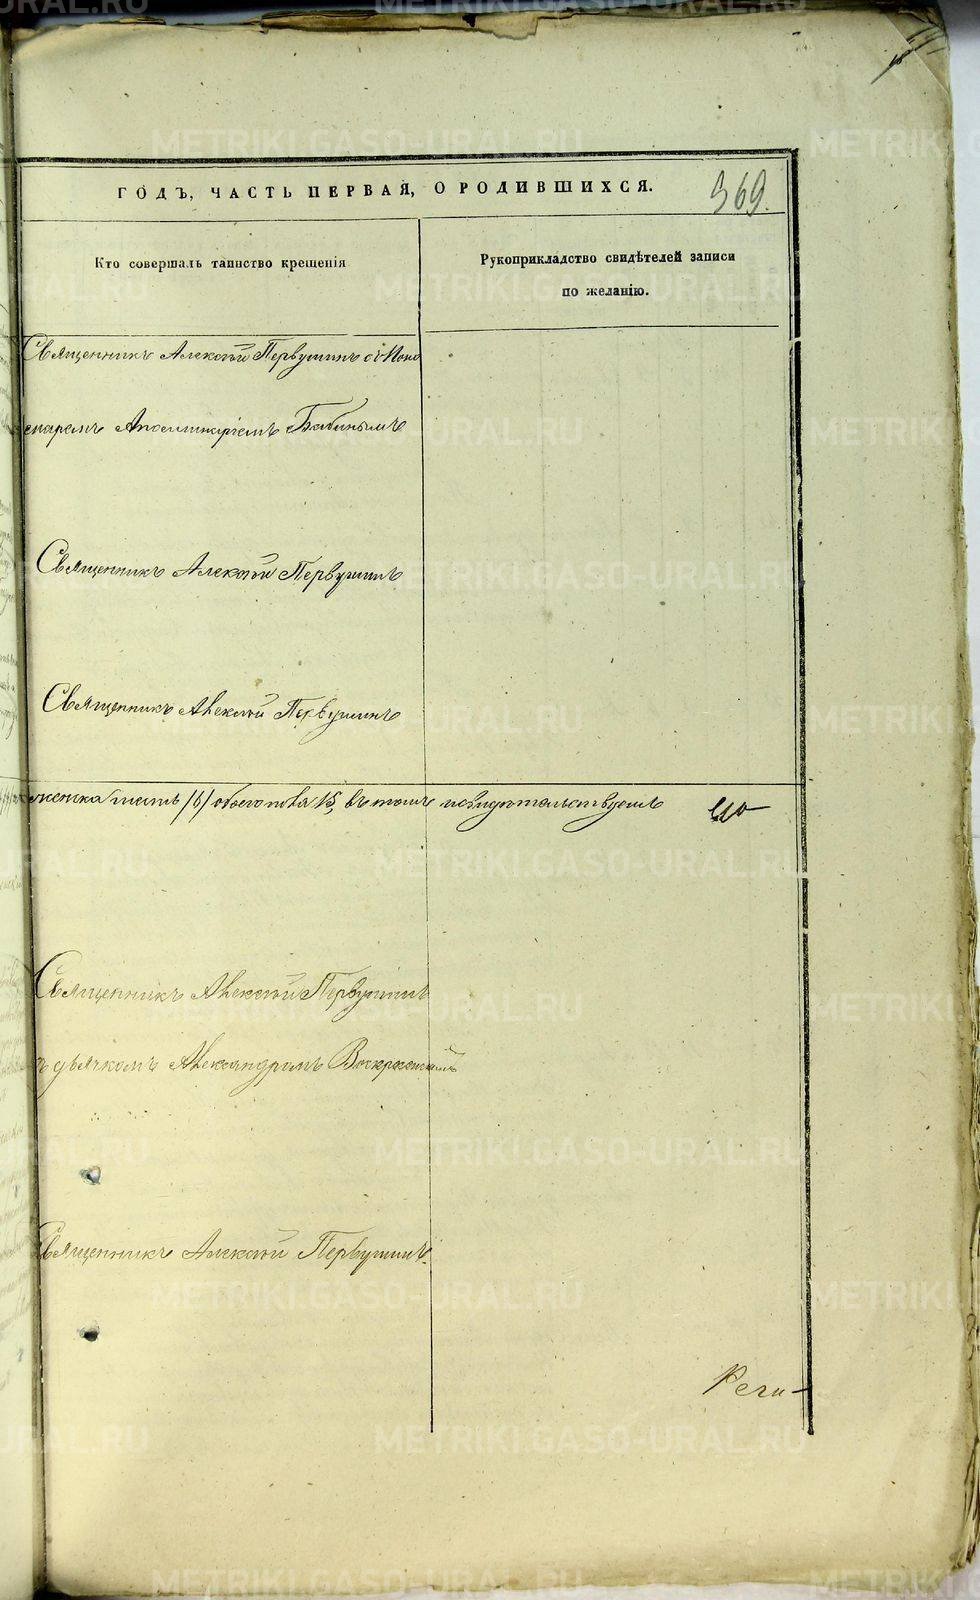 ГОДЪ, ЧАСТЬ ПЕРВАЯ, О РОДИВШИХСЯ.
369.
Кто совершалъ таинство крещенія
Рукоприкладство свидѣтелей записи
по желанію.
Священникъ Алексѣй Первушинъ съ Поно
маремъ Апполинаріемъ Бабинымъ
Священникъ Алексѣй Первушинъ
Священникъ Алексѣй Первушинъ
женска шесть /6/ обоего пола 15, въ томъ и свидѣтельствуемъ
Священникъ Алексѣй Первушинъ
съ дьячкомъ Александромъ Воскресенскимъ
Священникъ Алексѣй Первушинъ.
METRIKI.GASO-URAL.RU